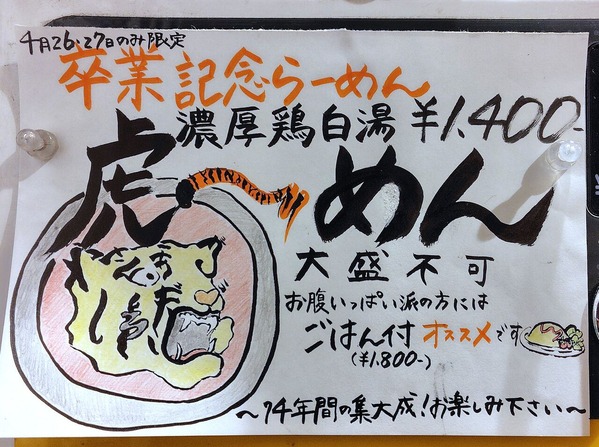 4月26・27日のみ限定
卒業記念らーめん
濃厚鶏白湯 ¥1,400-
虎ーめん
大盛不可
お腹いっぱい派の方には
ごはん付オススメです
(¥1,800-)
〜14年間の集大成!お楽しみ下さい〜